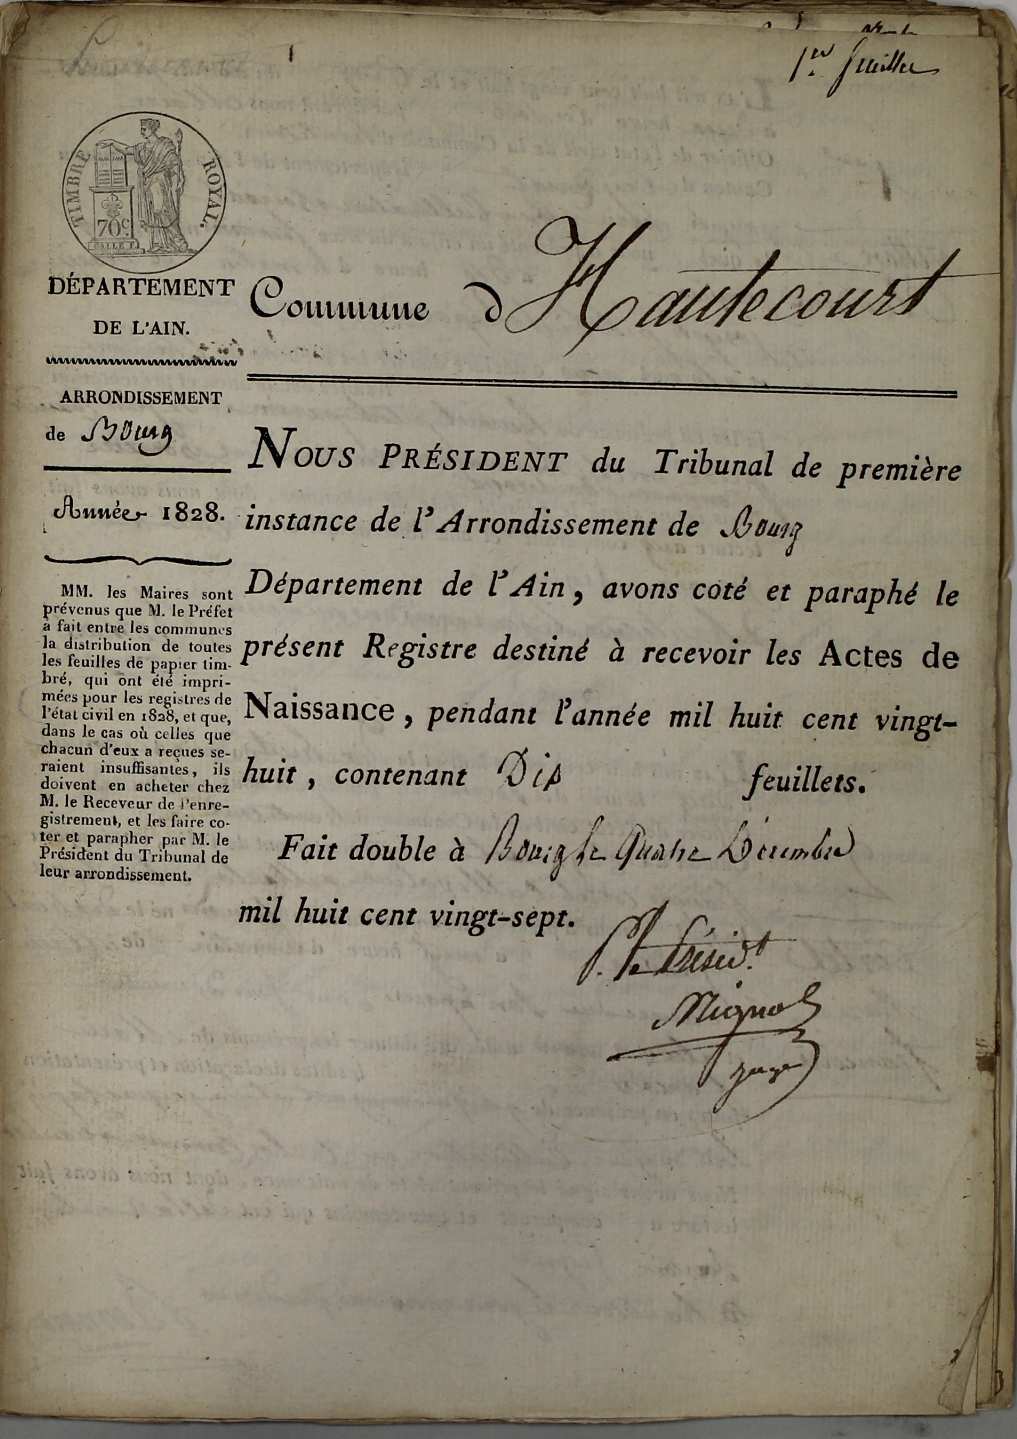 1er feuillet
TIMBRE ROYAL.
70c
DÉPARTEMENT
DE L'AIN.
Commune d'Hautecourt
ARRONDISSEMENT
de Bourg
Année 1828.
MM. les Maires sont
prévenus que M. le Préfet
a fait entre les communes
la distribution de toutes
les feuilles de papier tim-
bré, qui ont été impri-
mées pour les registres de
l'état civil en 1828, et que,
dans le cas où celles que
chacun d'eux a reçues se-
raient insuffisantes, ils
doivent en acheter chez
M. le Receveur de l'enre-
gistrement, et les faire co-
ter et parapher par M. le
Président du Tribunal de
leur arrondissement.
NOUS PRÉSIDENT du Tribunal de première
instance de l'Arrondissement de Bourg
Département de l'Ain, avons coté et paraphé le
présent Registre destiné à recevoir les Actes de
Naissance, pendant l'année mil huit cent vingt-
huit, contenant Dix feuillets.
Fait double à Bourg le Quatre Décembre
mil huit cent vingt-sept.
P. le Présidt.
Juge